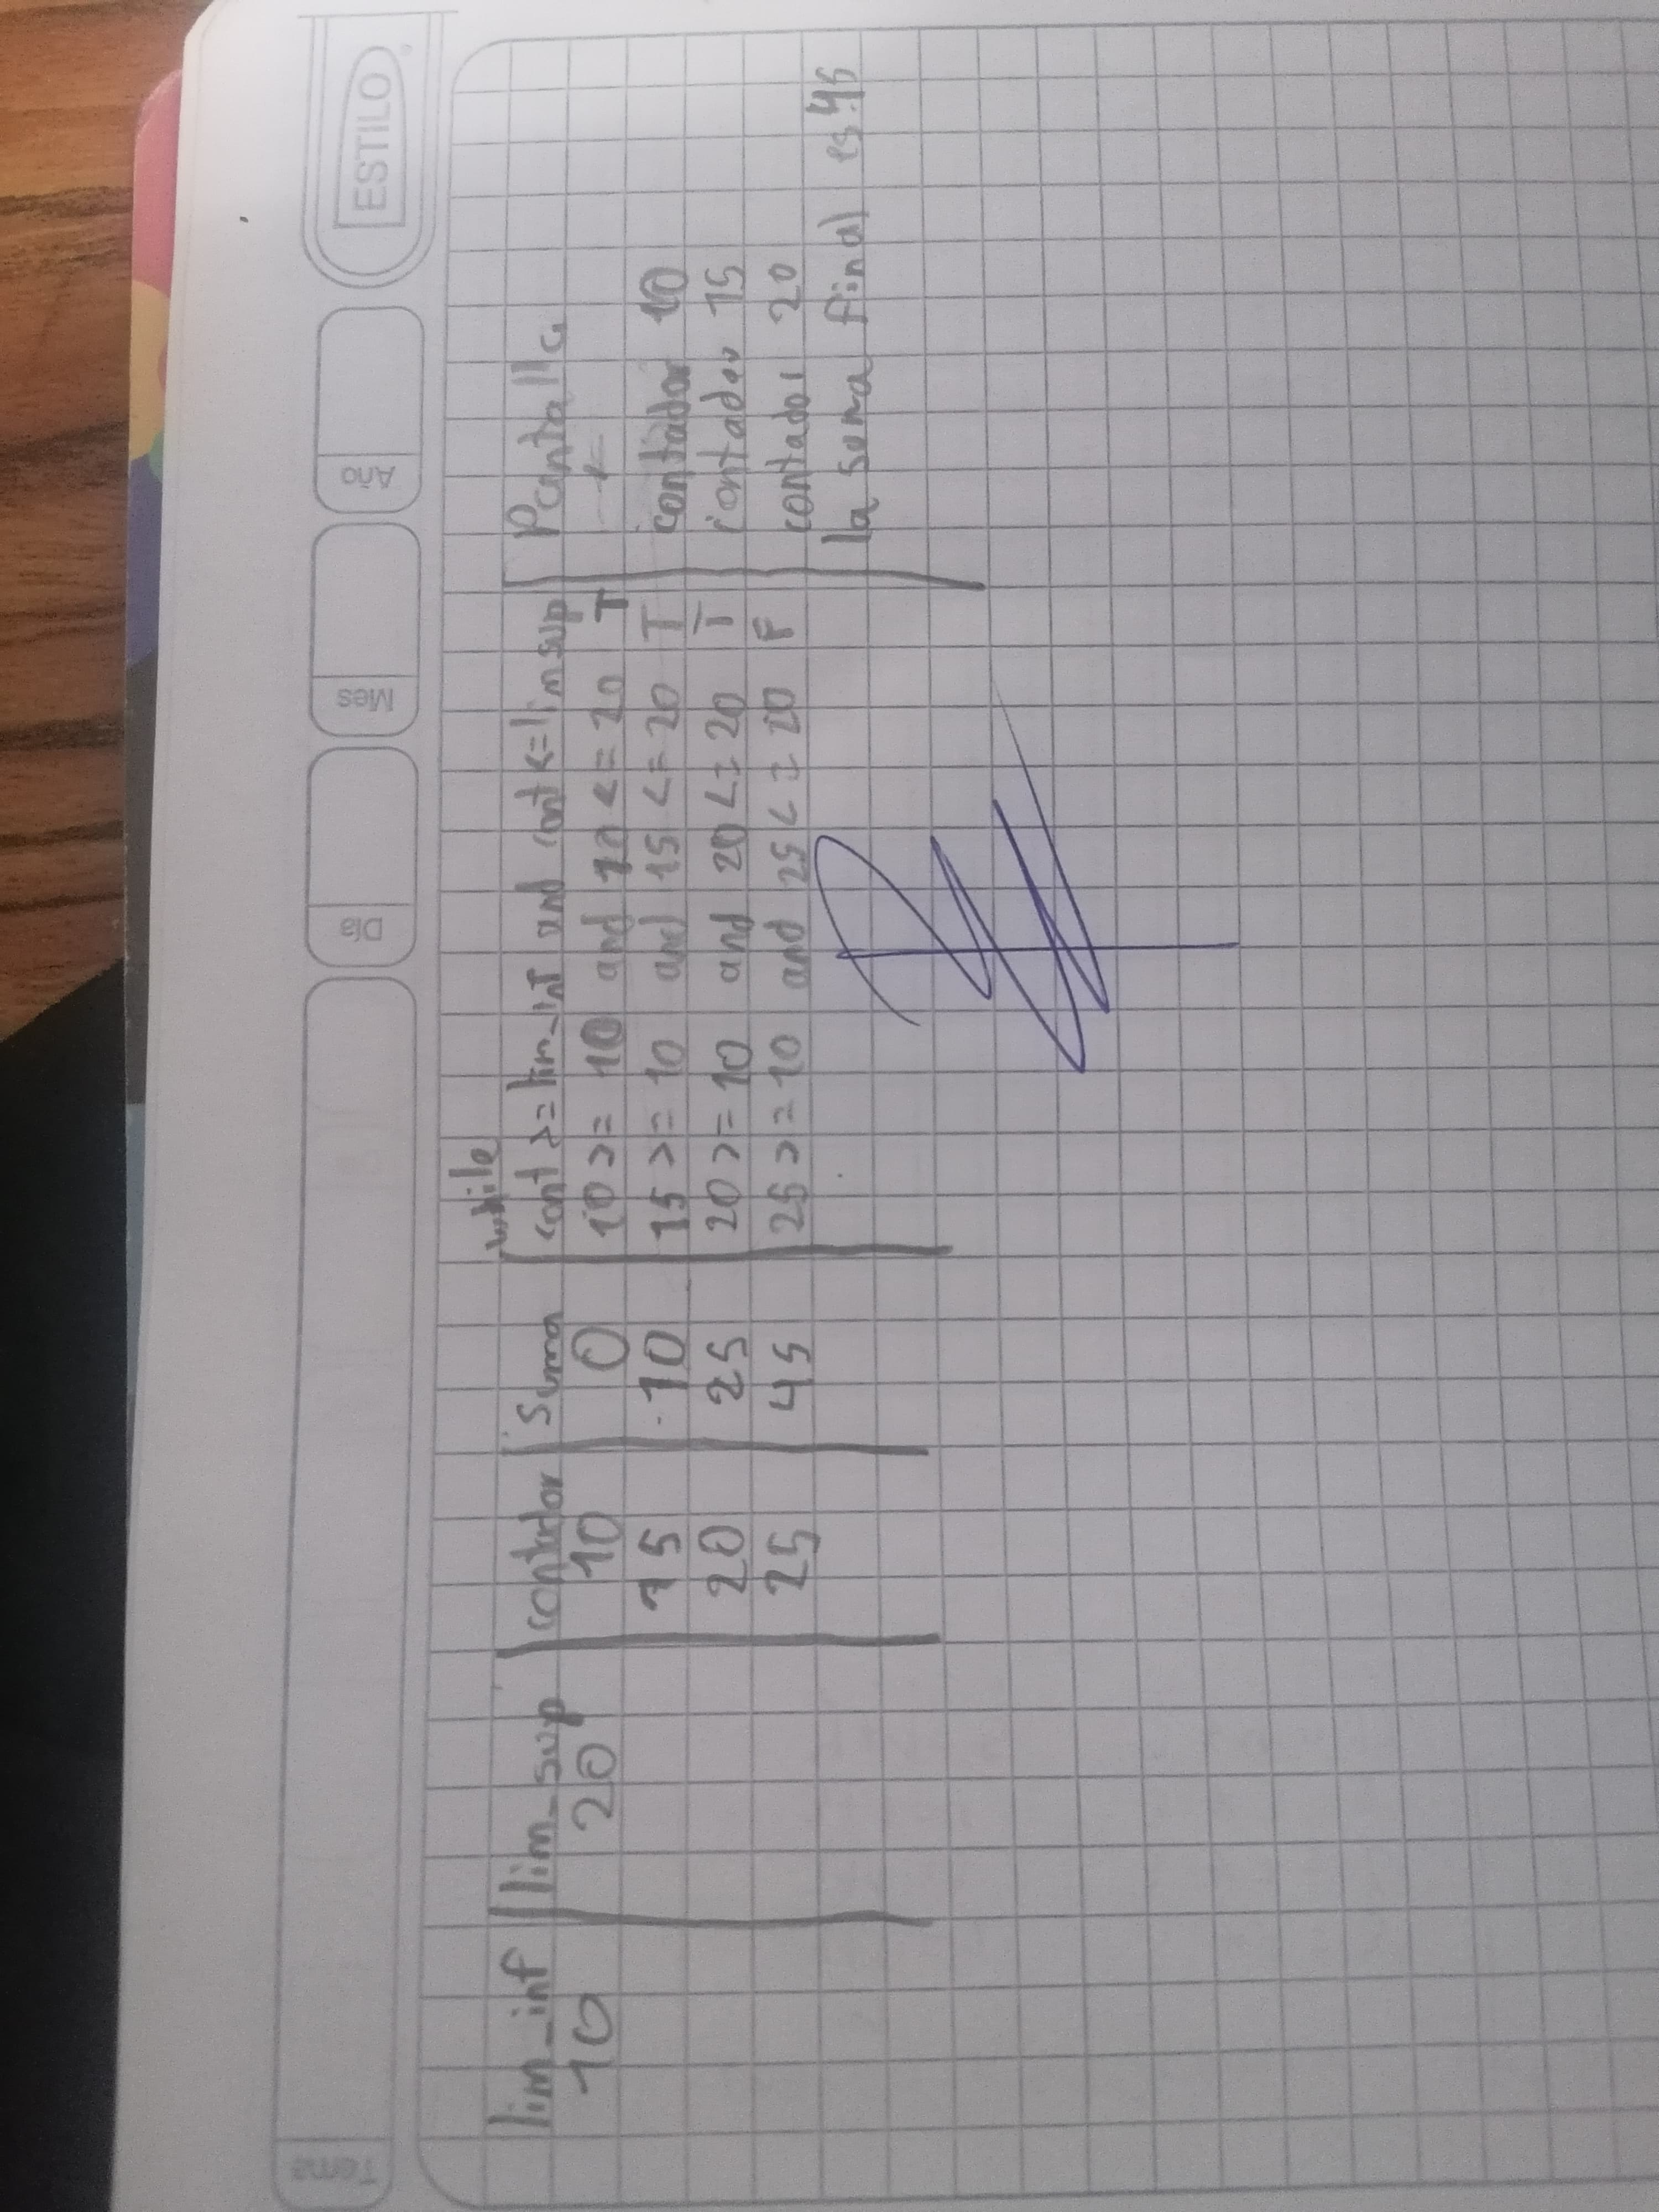 ESTILO
Tema Día Mes Año
while
lim_inf lim_sup contador Suma cont >= lim_inf and cont <= lim sup Pantalla
10 20 10 0 10 >= 10 and 10 <= 20 T
15 10 15 >= 10 and 15 <= 20 T contador 10
20 25 20 >= 10 and 20 <= 20 T contador 15
25 45 25 >= 10 and 25 <= 20 F contador 20
la suma final es 45